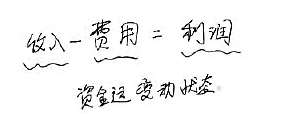 收入-费用=利润
资金运变动状态